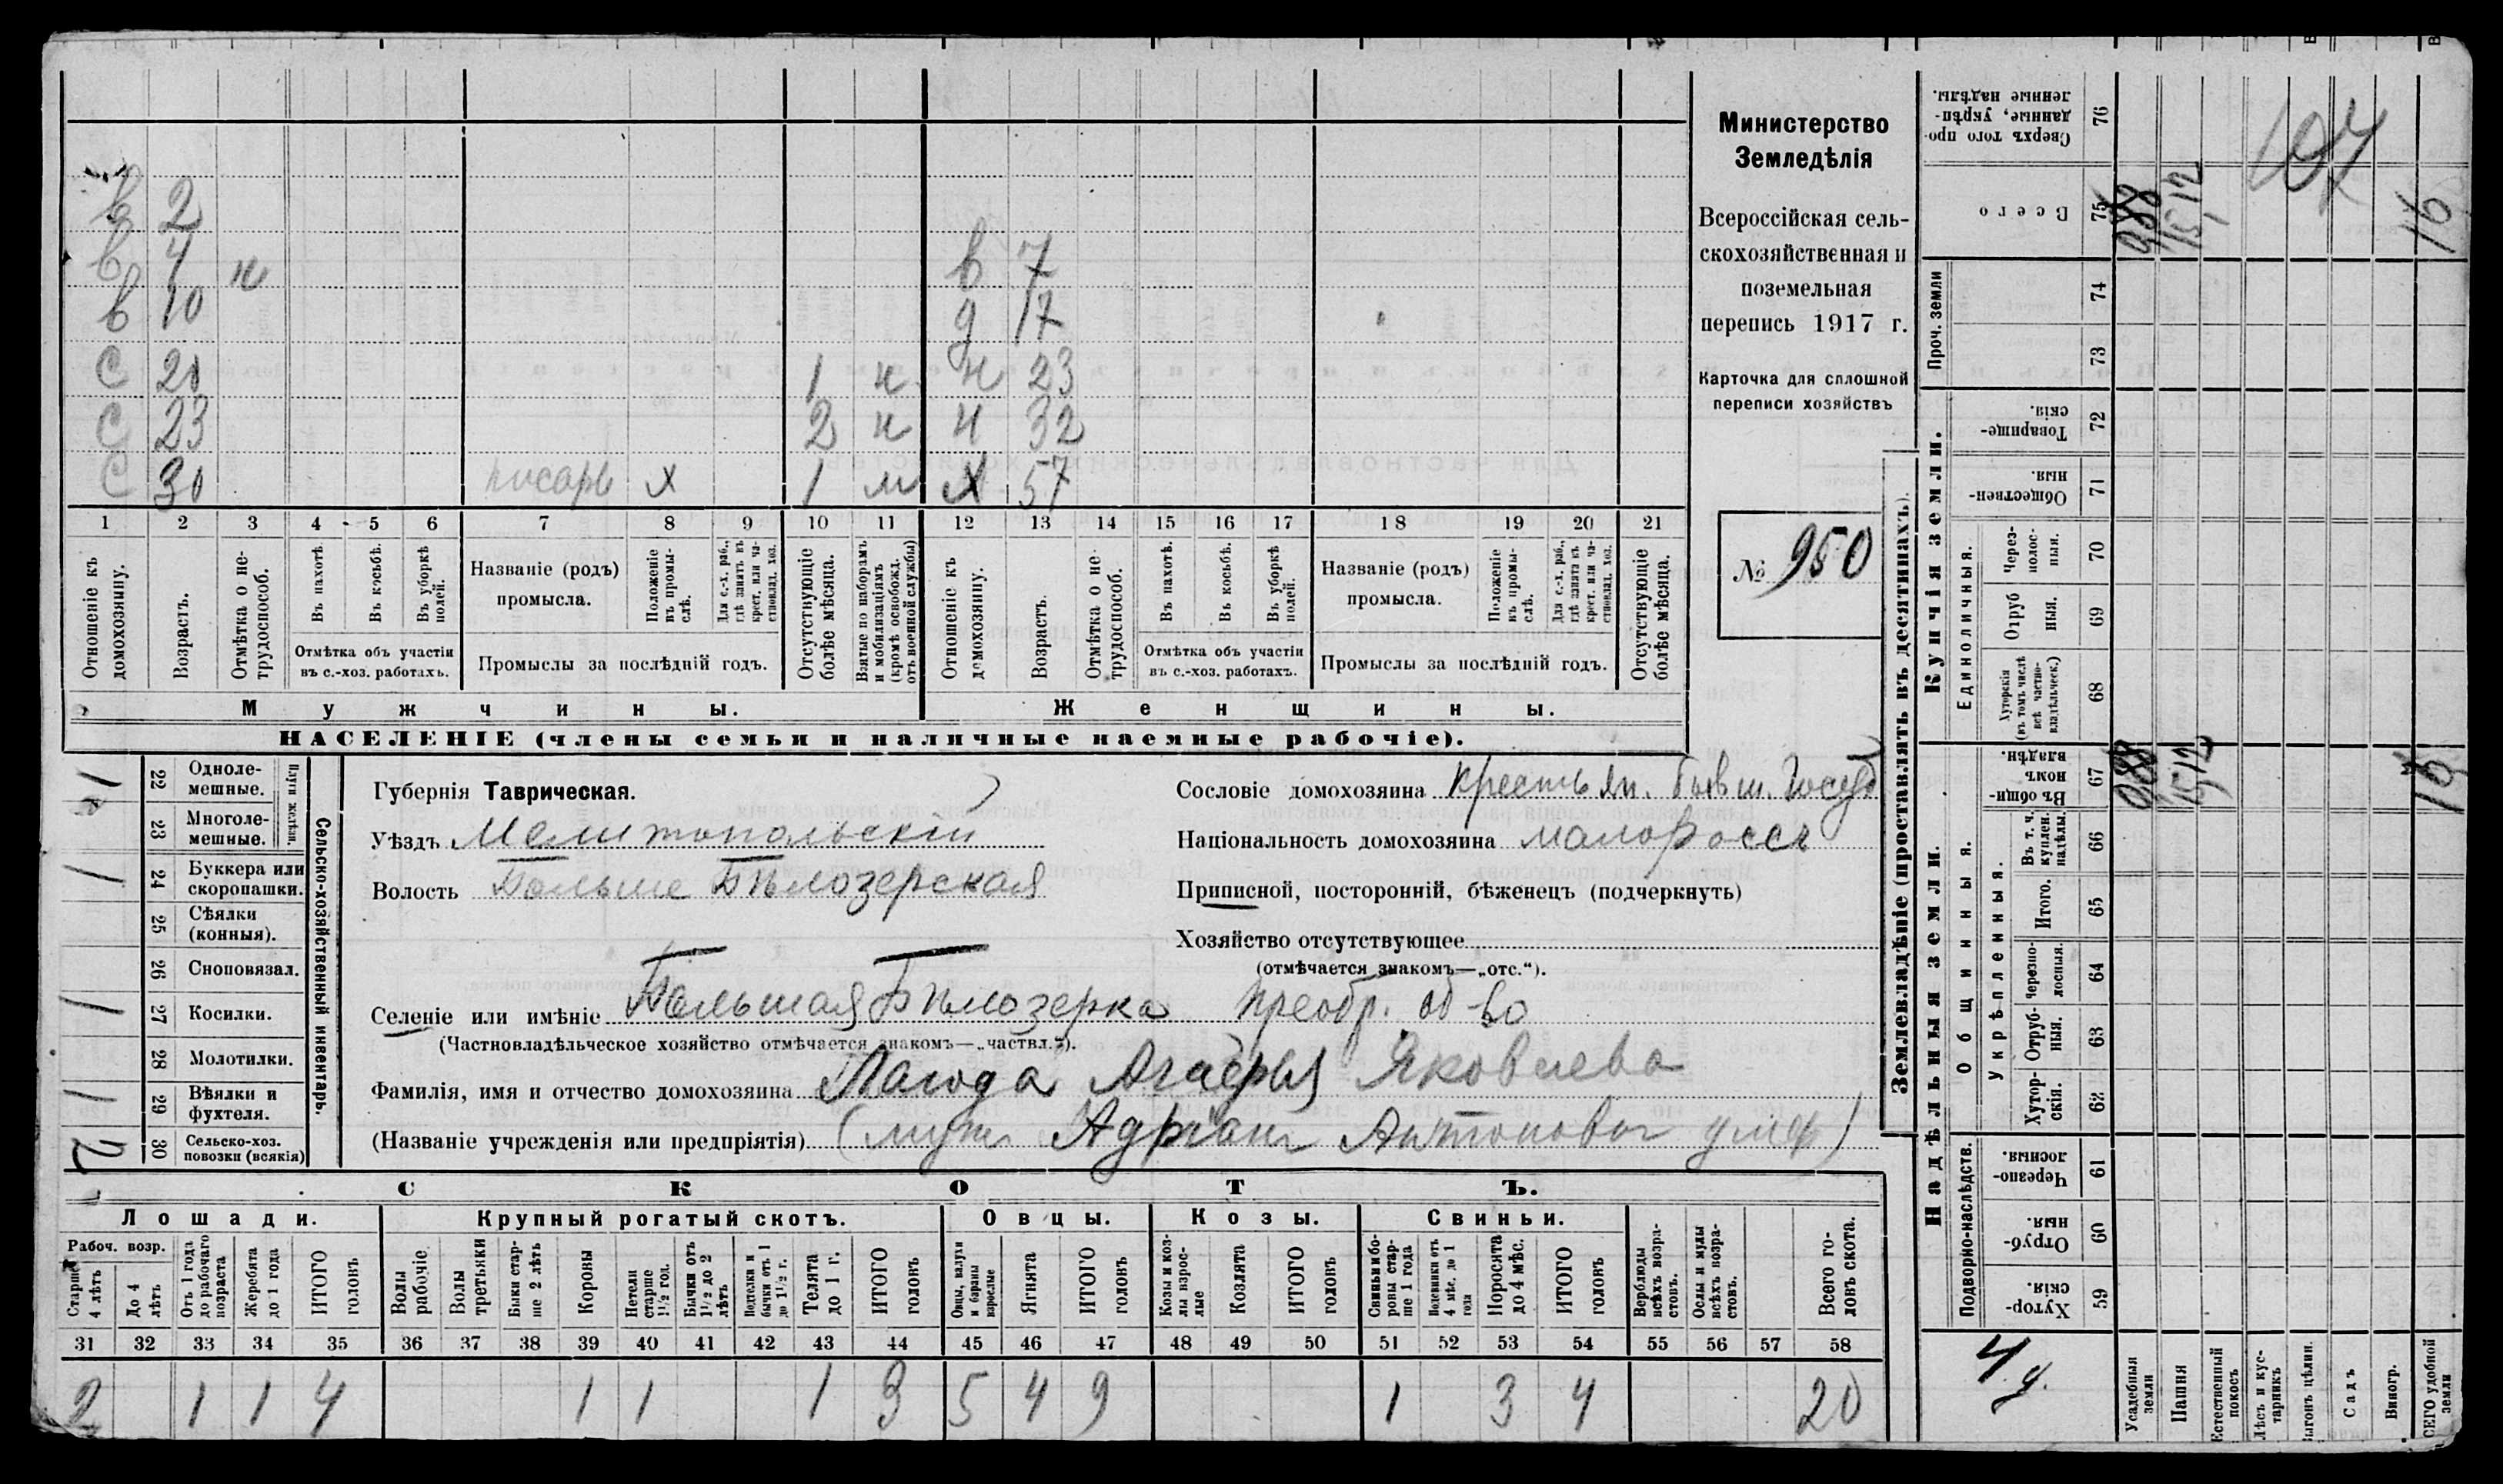 Министерство
Земледѣлія
Всероссійская сель-
скохозяйственная и
поземельная
перепись 1917 г.
Карточка для сплошной
переписи хозяйствъ
№ 950
в 2
в 4 н
в 10
с 20 1 н
с 23 2 н
с 30 писарь х 1 м
в 7
д 17
н 23
н 32
х 57
1 2 3 4 5 6 7 8 9 10 11 12 13 14 15 16 17 18 19 20 21
Отношеніе къ домохозяину.
Возрастъ.
Отмѣтка о не-трудоспособ.
Въ пахотѣ.
Въ косьбѣ.
Въ уборкѣ полей.
Отмѣтка объ участіи
въ с.-хоз. работахъ.
Названіе (родъ)
промысла.
Положеніе въ промы-слѣ.
Для с.-х. раб., гдѣ занятъ въ крест. или ча-стновлад. хоз.
Промыслы за послѣдній годъ.
Отсутствующіе болѣе мѣсяца.
Взятые по наборамъ и мобилизаціямъ (кромѣ освобожд. отъ военной службы)
Отношеніе къ домохозяину.
Возрастъ.
Отмѣтка о не-трудоспособ.
Въ пахотѣ.
Въ косьбѣ.
Въ уборкѣ полей.
Отмѣтка объ участіи
въ с.-хоз. работахъ.
Названіе (родъ)
промысла.
Положеніе въ промы-слѣ.
Для с.-х. раб., гдѣ занята въ крест. или ча-стновлад. хоз.
Промыслы за послѣдній годъ.
Отсутствующіе болѣе мѣсяца.
Мужчины.
Женщины.
НАСЕЛЕНІЕ (члены семьи и наличные наемные рабочіе).
Сельско-хозяйственный инвентарь.
Плуги желѣзн.
1 22 Одноле-мешные.
23 Многоле-мешные.
1 24 Буккера или скоропашки.
25 Сѣялки (конныя).
26 Сноповязал.
1 27 Косилки.
28 Молотилки.
1 29 Вѣялки и фухтеля.
2 30 Сельско-хоз. повозки (всякія)
Губернія Таврическая.
Уѣздъ Мелитопольскій
Волость Больше Бѣлозерская
Сословіе домохозяина крестьян. бывш. Госуд
Національность домохозяина малороссъ
Приписной, посторонній, бѣженецъ (подчеркнуть)
Хозяйство отсутствующее
(отмѣчается знакомъ—„отс.“).
Селеніе или имѣніе Большая Бѣлозерка преобр. об-во
(Частновладѣльческое хозяйство отмѣчается знакомъ—„частвл.“).
Фамилія, имя и отчество домохозяина Яковлева
(Названіе учрежденія или предпріятія) (мужъ Адріанъ Антоновъ умер)
СКОТЪ.
Лошади.
Крупный рогатый скотъ.
Овцы.
Козы.
Свиньи.
Рабоч. возр.
Старше 4 лѣтъ
До 4 лѣтъ
Отъ 1 года до рабочаго возраста
Жеребята до 1 года
ИТОГО головъ
Волы рабочіе
Волы третьяки
Быки стар-ше 2 лѣтъ
Коровы
Нетели старше 1½ год.
Бычки отъ 1½ до 2 лѣтъ
Подтелки и бычки отъ 1 до 1½ г.
Телята до 1 г.
ИТОГО головъ
Овцы, валухи и бараны взрослые
Ягнята
ИТОГО головъ
Козы и коз-лы взрос-лые
Козлята
ИТОГО головъ
Свиньи и бо-ровы стар-ше 1 года
Подсвинки отъ 4 мѣс. до 1 года
Поросята до 4 мѣс.
ИТОГО головъ
Верблюды всѣхъ возра-стовъ.
Ослы и мулы всѣхъ возра-стовъ.
Всего го-ловъ скота.
31 32 33 34 35 36 37 38 39 40 41 42 43 44 45 46 47 48 49 50 51 52 53 54 55 56 57 58
2 1 1 4 1 1 1 3 5 4 9 1 3 4 20
Землевладѣніе (проставлять въ десятинахъ).
Сверхъ того про-данные, укрѣп-ленные надѣлы. 76
Всего 75 0,88 15,12 16
107
Проч. земли 74
73
Купчія земли.
Товарище-скія. 72
Обществен-ныя. 71
Единоличныя.
Через-полос-ныя. 70
Отруб ныя. 69
Хуторскія (въ томъ числѣ всѣ частно-владѣльческ.) 68
Надѣльныя земли.
Общинныя.
Въ общин-номъ владѣн. 67 0,88 15,12 16
Укрѣпленныя.
Въ т. ч. куплен. надѣлы. 66
Итого. 65
Черезпо-лосныя. 64
Отруб-ныя. 63
Хутор-скія. 62
Подворно-наслѣдств.
Черезпо-лосныя. 61
Отруб-ныя. 60
Хутор-скія. 59
4 д.
Усадебныя земли
Пашня
Естественный покосъ
Лѣсъ и кус-тарникъ
Выгонъ цѣлин.
Садъ
Виногр.
ВСЕГО удобной земли